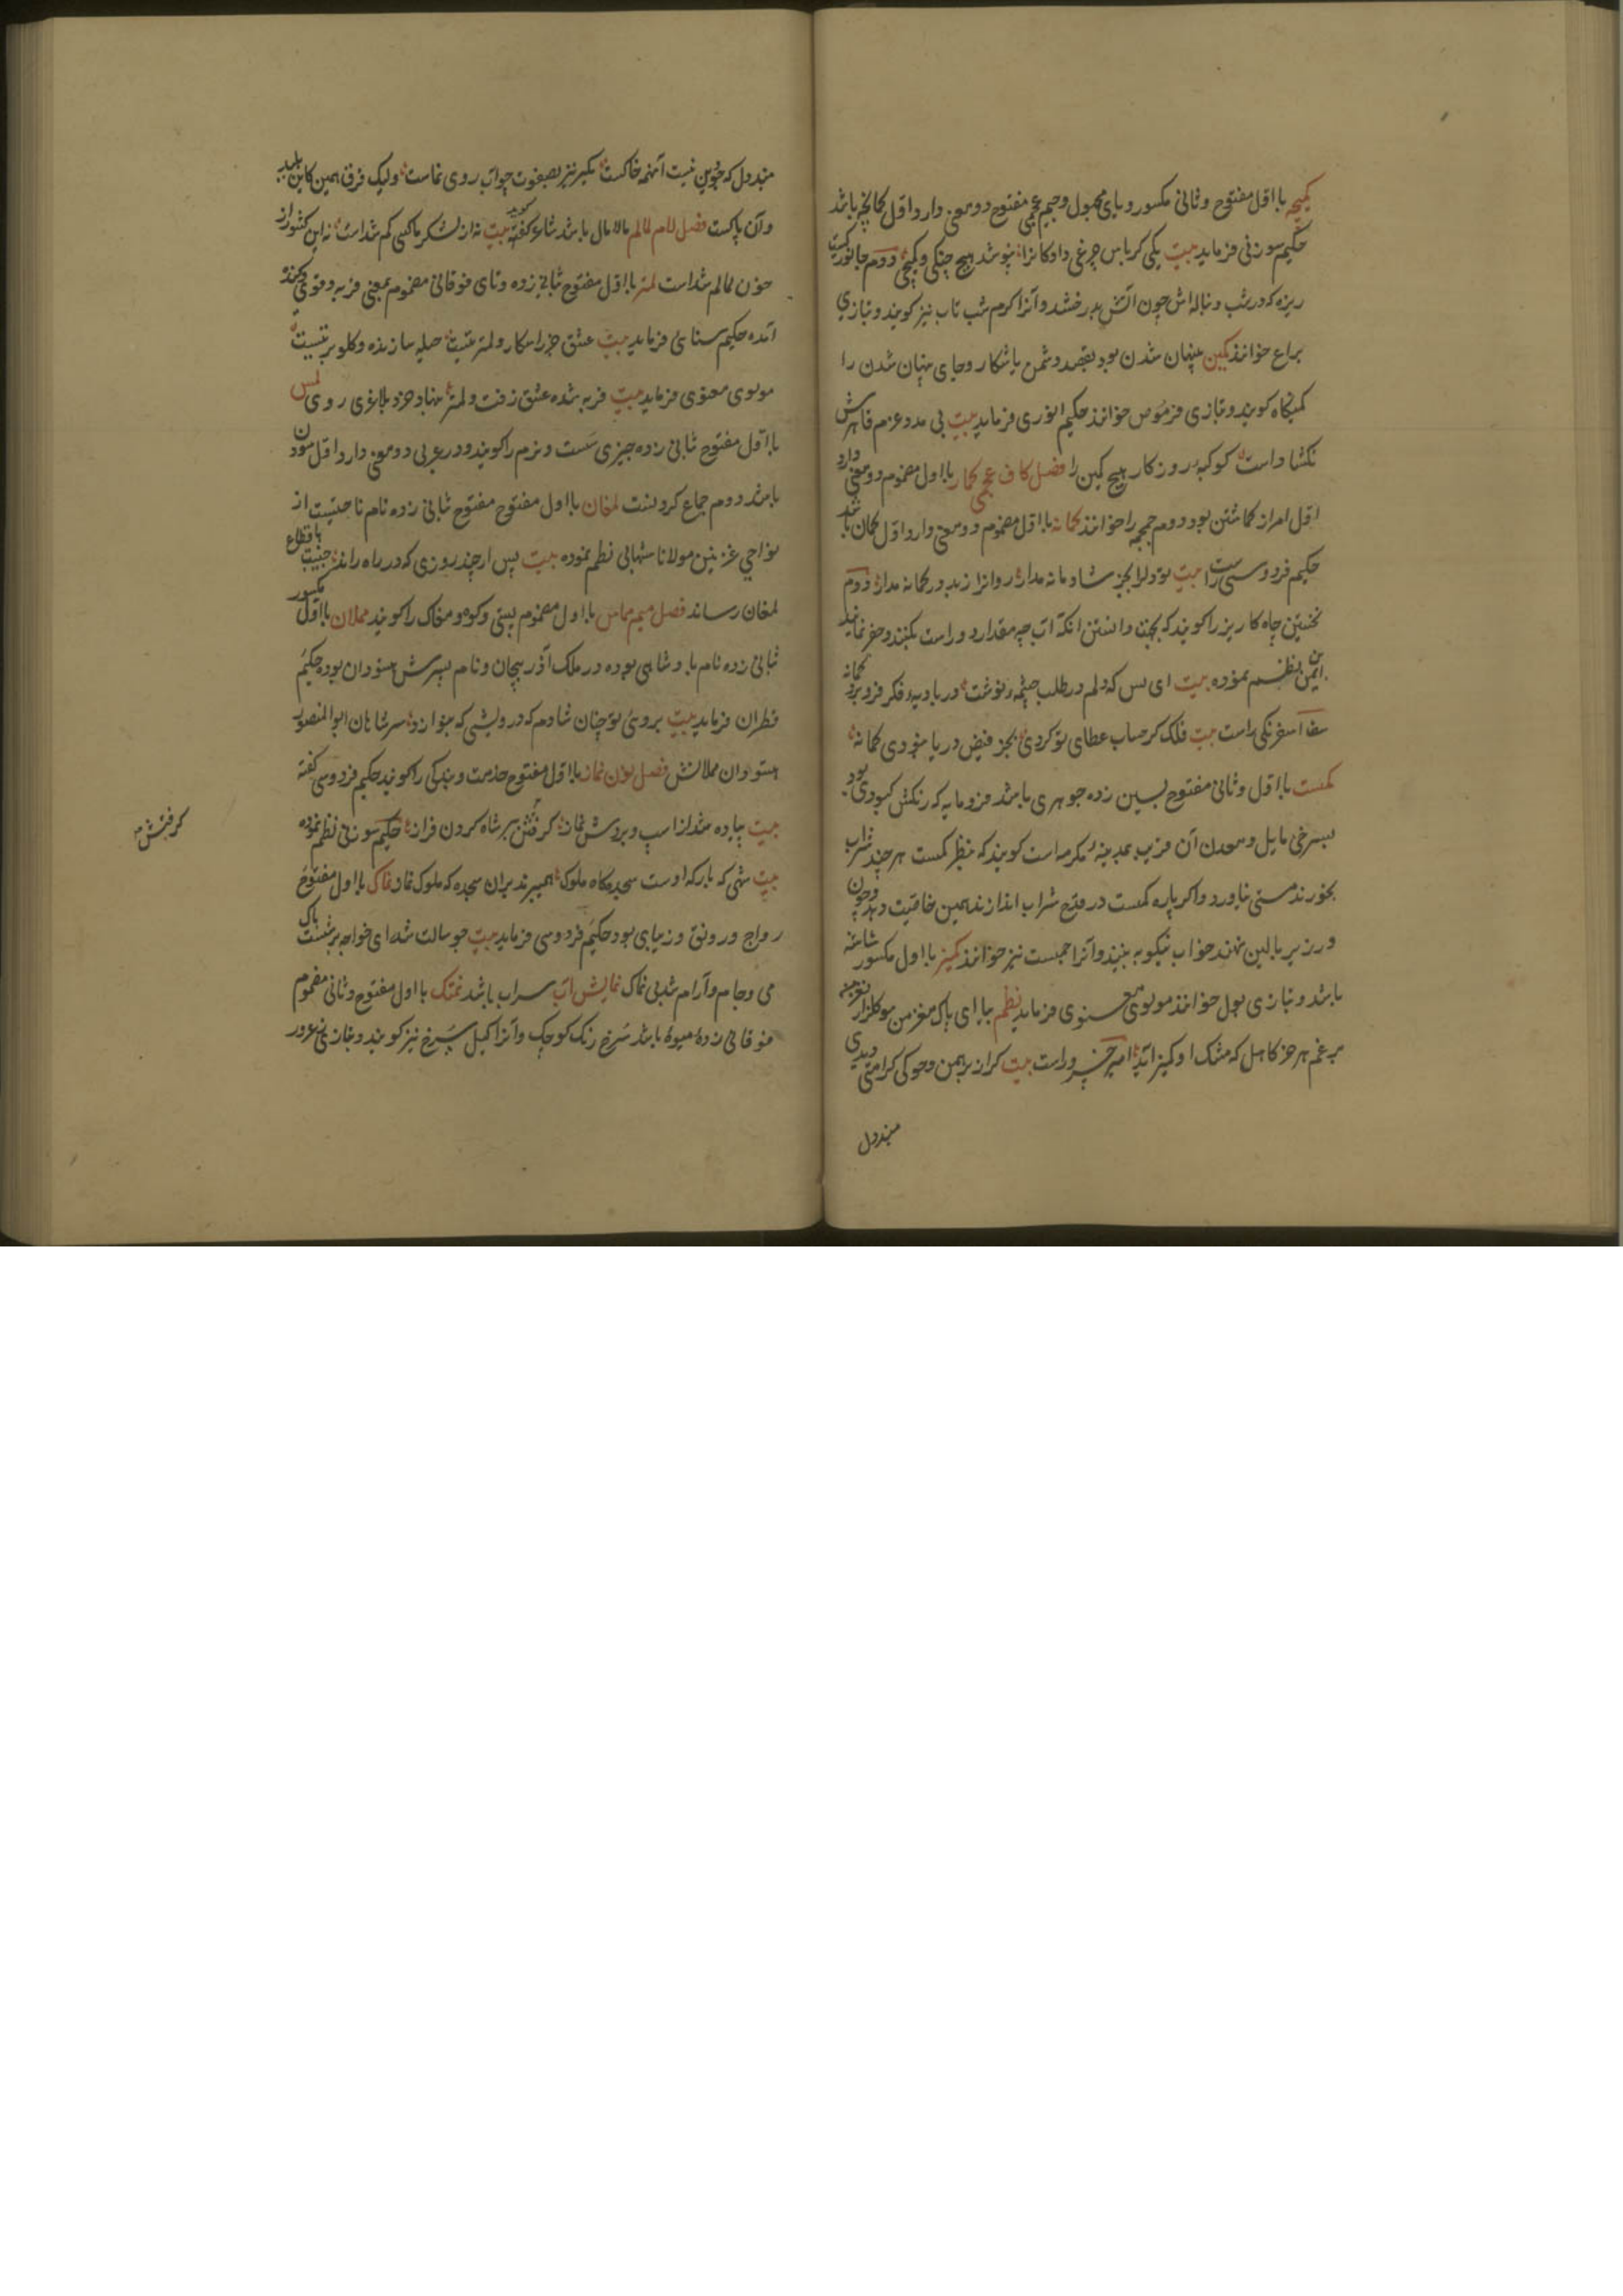 کمیچه با اول مفتوح و ثانی مکسور و یای مجهول و جیم عجمی مفتوح دو معنی دارد اول کمانچه باشد
حکیم سوزنی فرماید بیت یکی کرباس چرغی داد کانرا نپوشد هیچ چنکی و کمیچی دوم جانوریست
ریزه که در شب دنباله اش چون آتش بدرخشد و آنرا کرم شب تاب نیز کویند و بتازی
براع خوانند کمین پنهان شدن بود بقصد دشمن یا شکار و جای پنهان شدن را
کمینکاه کویند و بتازی فرموس خوانند حکیم انوری فرماید بیت بی مدد عزم قاهرش
نکشاداست کوکبهٔ روزکار هیچ کمین را فصل کاف عجمی کمار با اول مضموم دو معنی دارد
اول امر از کماشتن بود دوم جمجمه را خوانند کمانه با اول مضموم دو معنی دارد اول کمان باشد
حکیم فردوسی راست بیت تو دل را بجز شادمانه مدار روانرا ز بد در کمانه مدار دوم
نخستین چاه کاریز را کویند که بجهت دانستن آنکه آب چه مقدار دور است بکنند و حفر نمایند
ابن یمین نظم نموده بیت ای بس که دلم در طلب چشمه نوشت در بادیه فکر فرو برد کمانه
سفا اسفرنکی راست بیت فلک کر حساب عطای تو کردی بجز فیض دریا نبودی کمانه
کمست با اول و ثانی مفتوح بسین زده جوهری باشد فرومایه که رنکش کبودی بود
بسرخی مایل و معدن آن قریب بمدینه مکرمه است کویند که بظرف کمست هر چند شراب
بخورند مستی نیاورد و اکر پاره کمست در قدح شراب اندازند همین خاصیت دهد و چون
در زیر بالین نهند خواب نیکو به بینند و آنرا جمست نیز خوانند کمیز با اول مکسور شاشه
باشد و بتازی بول خوانند مولوی معنوی فرماید نظم بیا ای پاک مغز من ببو کلزار نغز من
برغم هر خر کاهل که مشک او کمیز آید امیر خسرو راست بیت کر از برهمن و جوکی کرامتی دیدی
مبند دل
مبند دل که چنین نیست آنهمه خاکست بکیر نیز بصیفوت جو آب روی نماست ولیک فرق همین کاین پلید
و آن پاکست فصل لام لمالم مالامال باشد شاعر کفته بیت نه از لشکر ما کسی کم شداست نه این کشور از
خون لمالم شداست لمتر با اول مفتوح ثانی زده و تای فوقانی مضموم بمعنی فربه و قوی کنده
آمده حکیم سنائی فرماید بیت عشق جز ابتکار و لمتر نیست حیله سازنده و کلوبر نیست
مولوی معنوی فرماید بیت فربه شده عشق زفت و لمتر بنهاد خرد بلاغری روی لمس
با اول مفتوح ثانی زده چیزی سست و نرم را کویند و در عربی دو معنی دارد اول سودن
باشد دوم جماع کردنست لمغان با اول مفتوح ثانی زده نام ناحیتیست از
نواحی غزنین مولانا شهابی نظم نموده بیت پس از چند روزی که در راه راند جنیبت باقطاع
لمغان رساند فصل میم مماس با اول مضموم پستی و کو و مغاک را کویند مملان با اول مکسور
ثانی زده نام پادشاهی بوده در ملک آذربیجان و نام پسرش هسودان بوده حکیم
قطران فرماید بیت بروی تو چنان شادم که درویشی که بنوازد سر شاهان ابوالمنصور
هستودان مملانش فصل نون نماز با اول مفتوح خدمت و بندکی را کویند حکیم فردوسی کفته
بیت پیاده شد از اسپ و بردش نماز کرفتش ببر شاه کردن فراز حکیم سوزنی نظم نموده
بیت شهی که بارکه اوست سجده کاه ملوک همیبرند بران سجده که ملوک نماز نماک با اول مفتوح
رواج و رونق و زیبایی بود حکیم فردوسی فرماید بیت چو سالت شد ای خواجه بر شست پاک
می و جام و آرام شد بی نماک نمایش آب سراب باشد نمتک با اول مفتوح و ثانی مضموم
فوقانی زده میوهٔ باشد سرخ رنک کوچک و آنرا کیل سرخ نیز کویند و بتازی زعرور
کرفتش